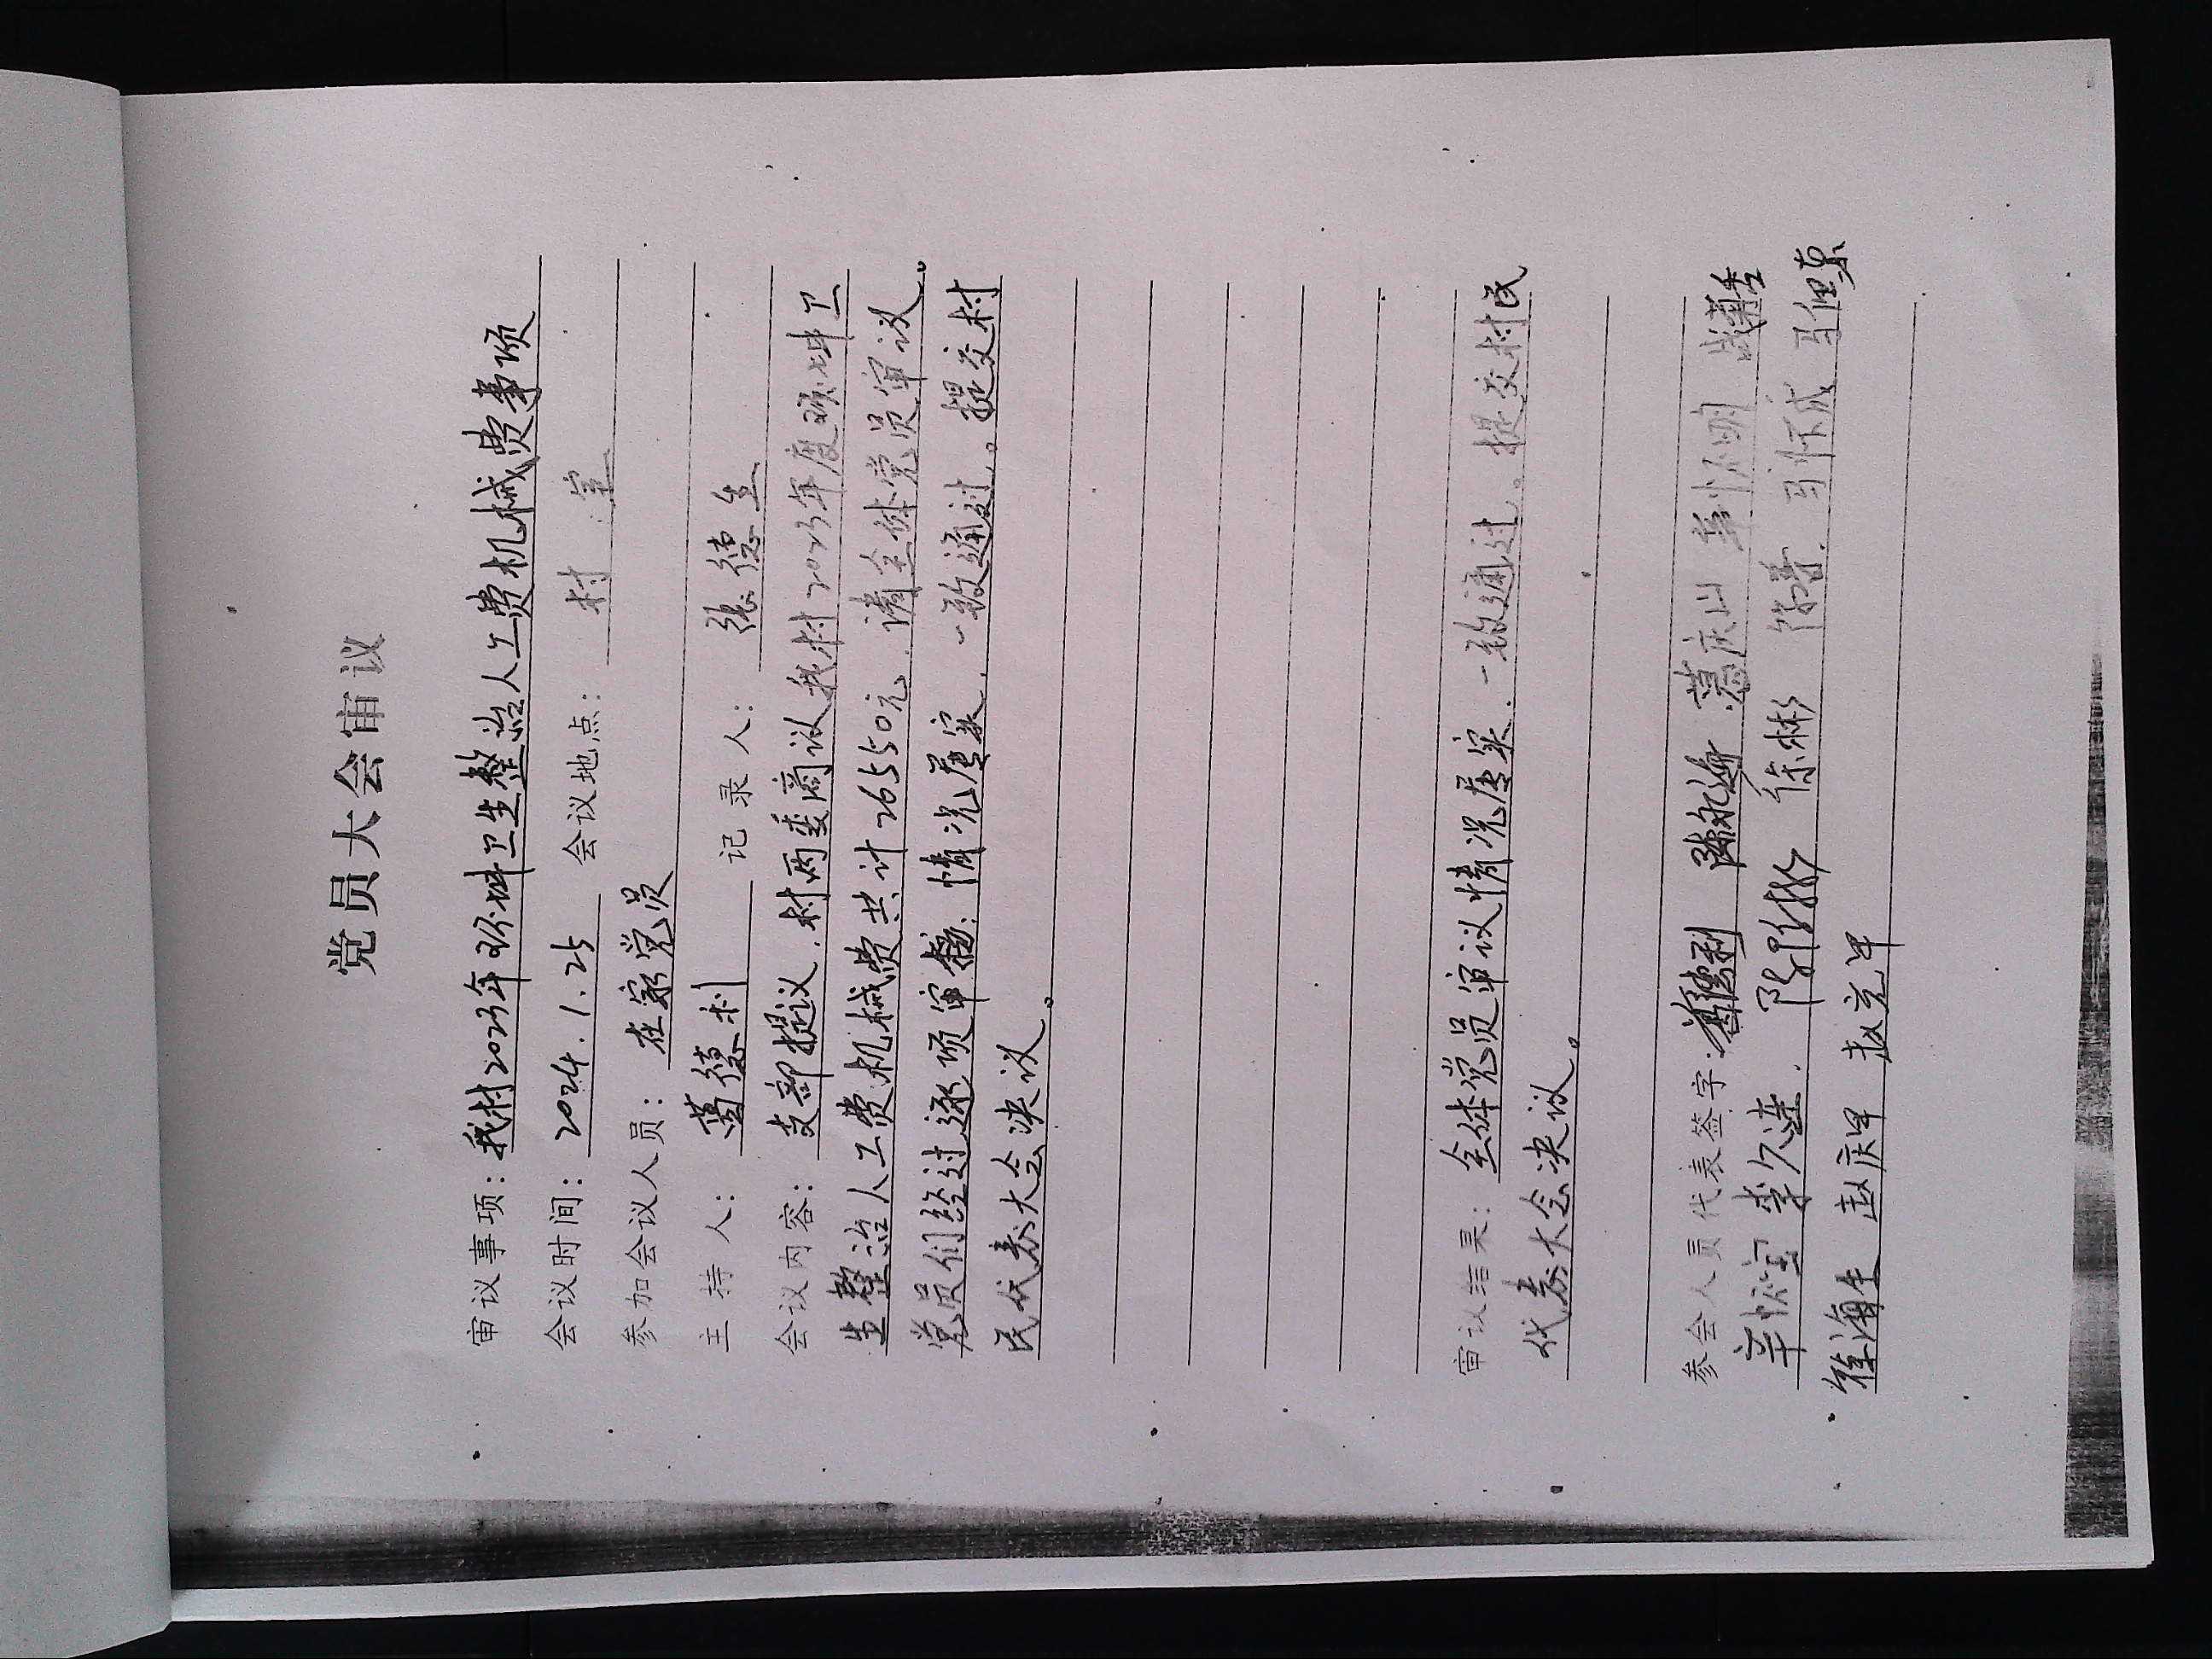 党员大会审议
审议事项：我村2023年环境卫生整治人工费机械费事项
会议时间：2024.1.25 会议地点：村 室
参加会议人员：在家党员
主 持 人：葛德利 记 录 人：张德生
会议内容：支部提议，村两委商议我村2023年度环境卫
生整治人工费机械费共计26550元，请全体党员审议。
党员们经过逐项审核，情况属实，一致通过。提交村
民代表大会决议。
审议结果：全体党员审议情况属实，一致通过。提交村民
代表大会决议。
参会人员代表签字：葛德利 葛庆山
李久莲 徐彬
赵庆军 赵克军